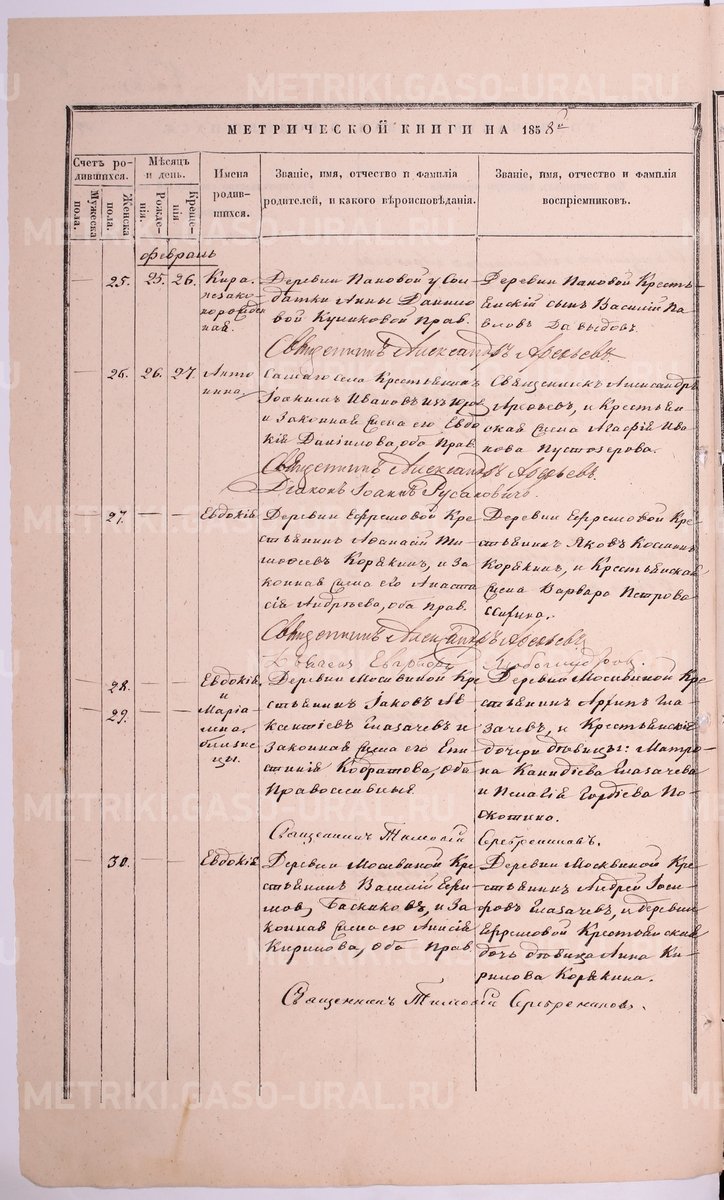 METRIKI.GASO-URAL.RU
МЕТРИЧЕСКОЙ КНИГИ НА 1858й
Счетъ родившихся.
Мужеска пола.
Женска пола.
Мѣсяцъ и день.
Рожденія.
Крещенія
Имена родившихся.
Званіе, имя, отчество и фамилія родителей, и какого вѣроисповѣданія.
Званіе, имя, отчество и фамилія воспріемниковъ.
февраль
— 25. 25. 26. Кира
незаконорожденная.
Деревни Пановой у Сол
датки Анны Данило
вой Куликовой Прав.
Деревни Пановой Кресть
янскій сынъ Василій Па
вловъ Давыдовъ.
Священникъ Александръ Арефьевъ
— 26. 26. 27. Анто
нина
Самаго села Крестьянинъ
Іоакимъ Ивановъ
и Законная жена его Евдо
кія Даніилова, оба Прав.
Священникъ Александръ
Арефьевъ, и Крестьян
ская жена Агафія Ива
нова Пустозерова.
Священникъ Александръ Арефьевъ.
Діаконъ Іоаннъ Русановичъ.
— 27. — — Евдокія
Деревни Ефремовой Кре
стьянинъ Афанасій Ти
мофеевъ Корякинъ, и За
конная жена его Анаста
сія Андреева, оба Прав.
Деревни Ефремовой Кре
стьянинъ Яковъ
Корякинъ, и Крестьянская
жена Варвара Петрова
Священникъ Александръ Арефьевъ
— 28. — — Евдокія
и
— 29. — — Марія
близне
цы.
Деревни Москвиной Кре
стьянинъ Іаковъ Ав
ксентіевъ Глазачевъ и
Законная жена его Епи
стимія Кодратова, оба
Православныя.
Деревни Москвиной Кре
стьянинъ Архипъ Гла
зачевъ, и Крестьянскія
дочери дѣвицы: Матро
на Глазачева
и Пелагія Гордіева
Священникъ Тимофій Серебрениковъ.
— 30. — — Евдокія
Деревни Москвиной Кре
стьянинъ Василій Ефи
мовъ, и За
конная жена его Анисія
Кирилова, оба Прав
Деревни Москвиной Кре
стьянинъ Андрей Іоси
фовъ Глазачевъ, и деревни
Ефремовой Крестьянская
дочь дѣвица Анна Ки
рилова Корякина.
Священникъ Тимофій Серебрениковъ.